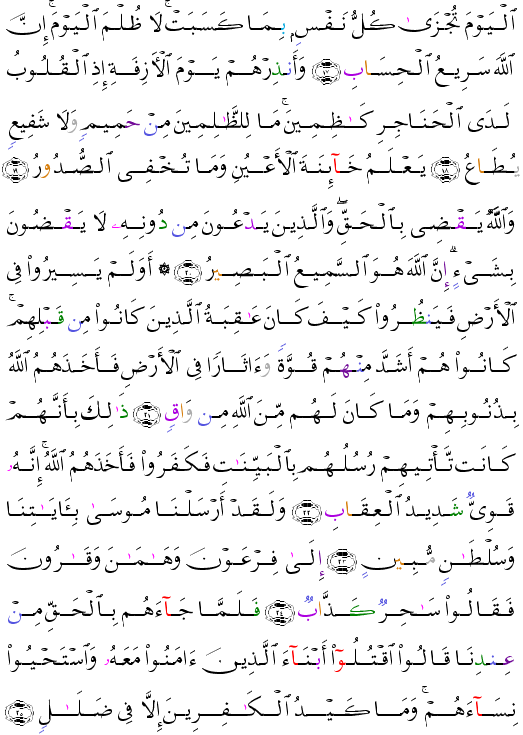 ٱلْيَوْمَ تُجْزَىٰ كُلُّ نَفْسٍۭ بِمَا كَسَبَتْ ۚ لَا ظُلْمَ ٱلْيَوْمَ ۚ إِنَّ
ٱللَّهَ سَرِيعُ ٱلْحِسَابِ ۝١٧ وَأَنذِرْهُمْ يَوْمَ ٱلْأَزِفَةِ إِذِ ٱلْقُلُوبُ
لَدَى ٱلْحَنَاجِرِ كَـٰظِمِينَ ۚ مَا لِلظَّـٰلِمِينَ مِنْ حَمِيمٍ وَلَا شَفِيعٍ
يُطَاعُ ۝١٨ يَعْلَمُ خَآئِنَةَ ٱلْأَعْيُنِ وَمَا تُخْفِى ٱلصُّدُورُ ۝١٩
وَٱللَّهُ يَقْضِى بِٱلْحَقِّ ۖ وَٱلَّذِينَ يَدْعُونَ مِن دُونِهِۦ لَا يَقْضُونَ
بِشَىْءٍ ۗ إِنَّ ٱللَّهَ هُوَ ٱلسَّمِيعُ ٱلْبَصِيرُ ۝٢٠ ۞ أَوَلَمْ يَسِيرُوا۟ فِى
ٱلْأَرْضِ فَيَنظُرُوا۟ كَيْفَ كَانَ عَـٰقِبَةُ ٱلَّذِينَ كَانُوا۟ مِن قَبْلِهِمْ ۚ
كَانُوا۟ هُمْ أَشَدَّ مِنْهُمْ قُوَّةً وَءَاثَارًا فِى ٱلْأَرْضِ فَأَخَذَهُمُ ٱللَّهُ
بِذُنُوبِهِمْ وَمَا كَانَ لَهُم مِّنَ ٱللَّهِ مِن وَاقٍ ۝٢١ ذَٰلِكَ بِأَنَّهُمْ
كَانَت تَّأْتِيهِمْ رُسُلُهُم بِٱلْبَيِّنَـٰتِ فَكَفَرُوا۟ فَأَخَذَهُمُ ٱللَّهُ ۚ إِنَّهُۥ
قَوِىٌّ شَدِيدُ ٱلْعِقَابِ ۝٢٢ وَلَقَدْ أَرْسَلْنَا مُوسَىٰ بِـَٔايَـٰتِنَا
وَسُلْطَـٰنٍ مُّبِينٍ ۝٢٣ إِلَىٰ فِرْعَوْنَ وَهَـٰمَـٰنَ وَقَـٰرُونَ
فَقَالُوا۟ سَـٰحِرٌ كَذَّابٌ ۝٢٤ فَلَمَّا جَآءَهُم بِٱلْحَقِّ مِنْ
عِندِنَا قَالُوا۟ ٱقْتُلُوٓا۟ أَبْنَآءَ ٱلَّذِينَ ءَامَنُوا۟ مَعَهُۥ وَٱسْتَحْيُوا۟
نِسَآءَهُمْ ۚ وَمَا كَيْدُ ٱلْكَـٰفِرِينَ إِلَّا فِى ضَلَـٰلٍ ۝٢٥